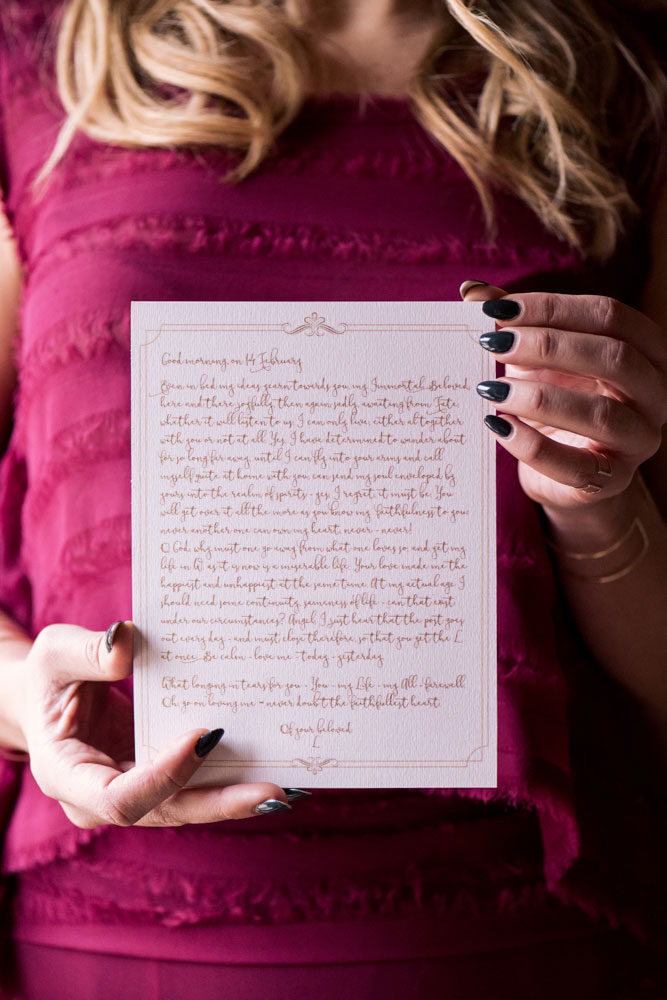 Good morning on 14 February
Even in bed my ideas yearn towards you my Immortal Beloved
here and there joyfully then again sadly awaiting from Fate,
whether it will listen to us. I can only live, either altogether
with you or not at all. Yes, I have determined to wander about
for so long far away, until I can fly into your arms and call
myself quite at home with you can send my soul enveloped by
yours into the realm of spirits - yes, I regret, it must be. You
will get over it all the more as you know my faithfulness to you;
never another one can own my heart, never - never!
O God, why must one go away from what one loves so, and yet my
life in as it is now is a miserable life. Your love made me the
happiest and unhappiest at the same time. At my actual age I
should need some continuity, sameness of life - can that exist
under our circumstances? Angel, I just hear that the post goes
out every day - and must close therefore, so that you get the L.
at once. Be calm - love me - today - yesterday.
What longing in tears for you - You - my Life - my All - farewell.
Oh, go on loving me - never doubt the faithfullest heart
Of your beloved
L